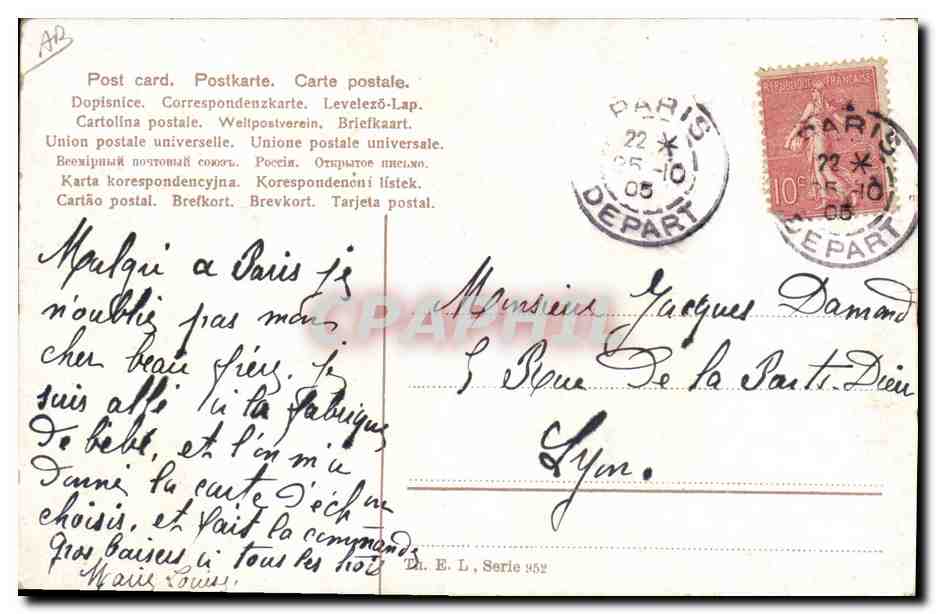 AB
Post card. Postkarte. Carte postale.
Dopisnice. Correspondenzkarte. Levelező-Lap.
Cartolina postale. Weltpostverein. Briefkaart.
Union postale universelle. Unione postale universale.
Всемірный почтовый союзъ. Россія. Открытое письмо.
Karta korespondencyjna. Korespondenční lístek.
Cartão postal. Brefkort. Brevkort. Tarjeta postal.
PARIS
22 *
25 -10
05
DEPART
REPUBLIQUE FRANÇAISE
10c
PARIS
22 *
25 -10
05
DEPART
Malgré a Paris je
n'oublie pas mon
cher beau frère. je
suis allé à la fabrique
De bébé, et l'on m'a
Donné la carte D'éch on
choisis, et fait la commande
gros baisers à tous les trois
Marie Louise.
CPAPHIL
Monsieur Jacques Damond
5 Rue De la Part-Dieu
Lyon.
Th. E. L., Serie 952